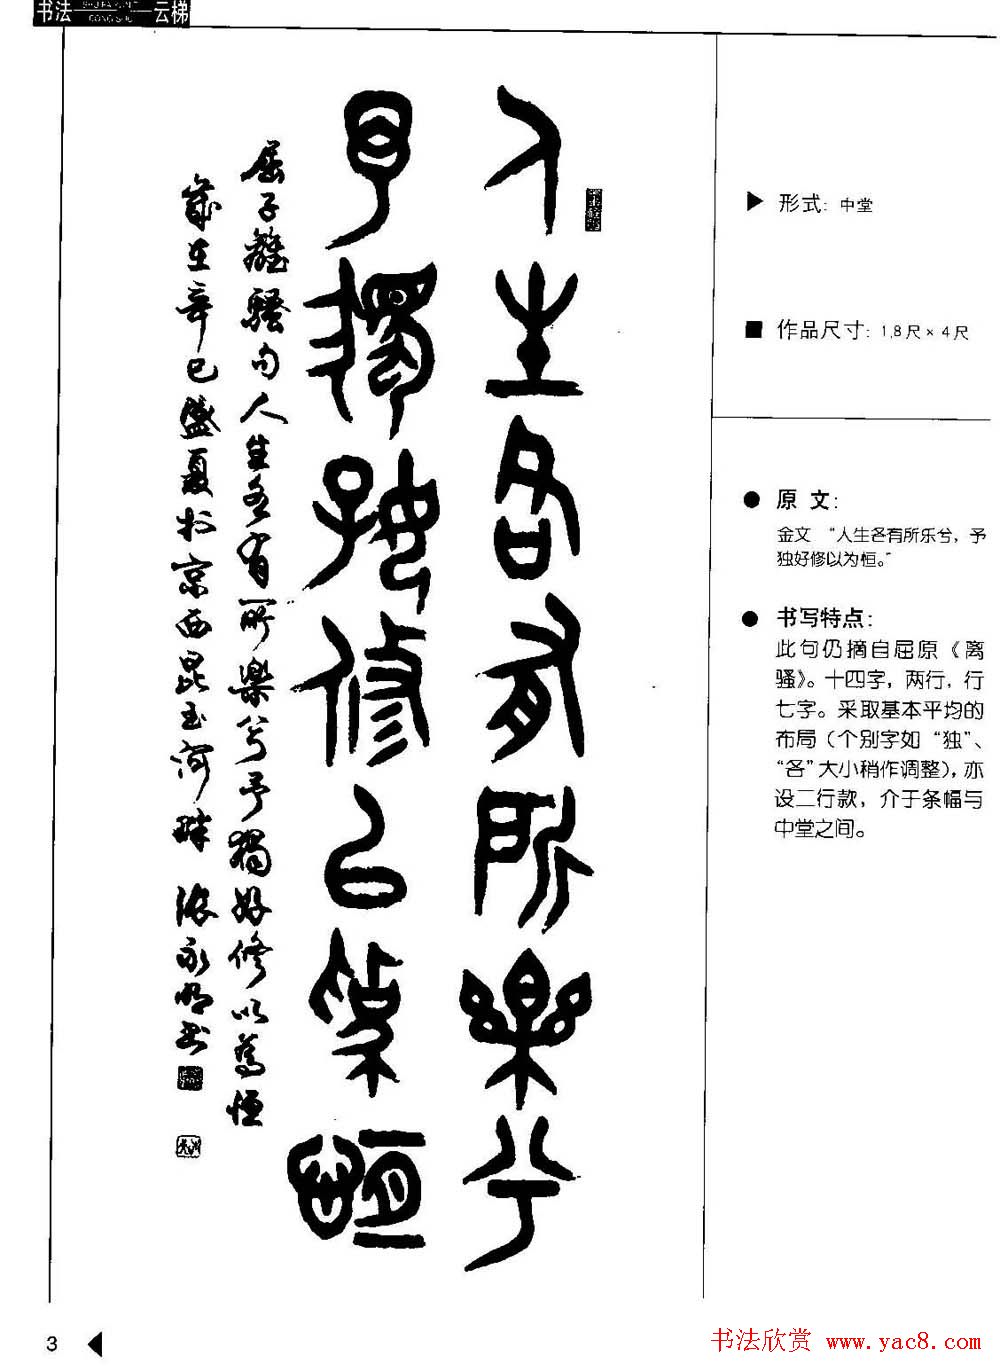 书法 SHU FA YUN TI CONG SHU 云梯
人生各有所樂兮
予獨好修以為恆
屈子離騷句人生各有所樂兮予獨好修以為恆
歲在辛巳盛夏於京西昆玉河畔 張永明書
形式：中堂
作品尺寸：1.8尺×4尺
原文：
金文 “人生各有所乐兮，予
独好修以为恒。”
书写特点：
此句仍摘自屈原《离
骚》。十四字，两行，行
七字。采取基本平均的
布局（个别字如“独”、
“各”大小稍作调整），亦
设二行款，介于条幅与
中堂之间。
3
书法欣赏 www.yac8.com